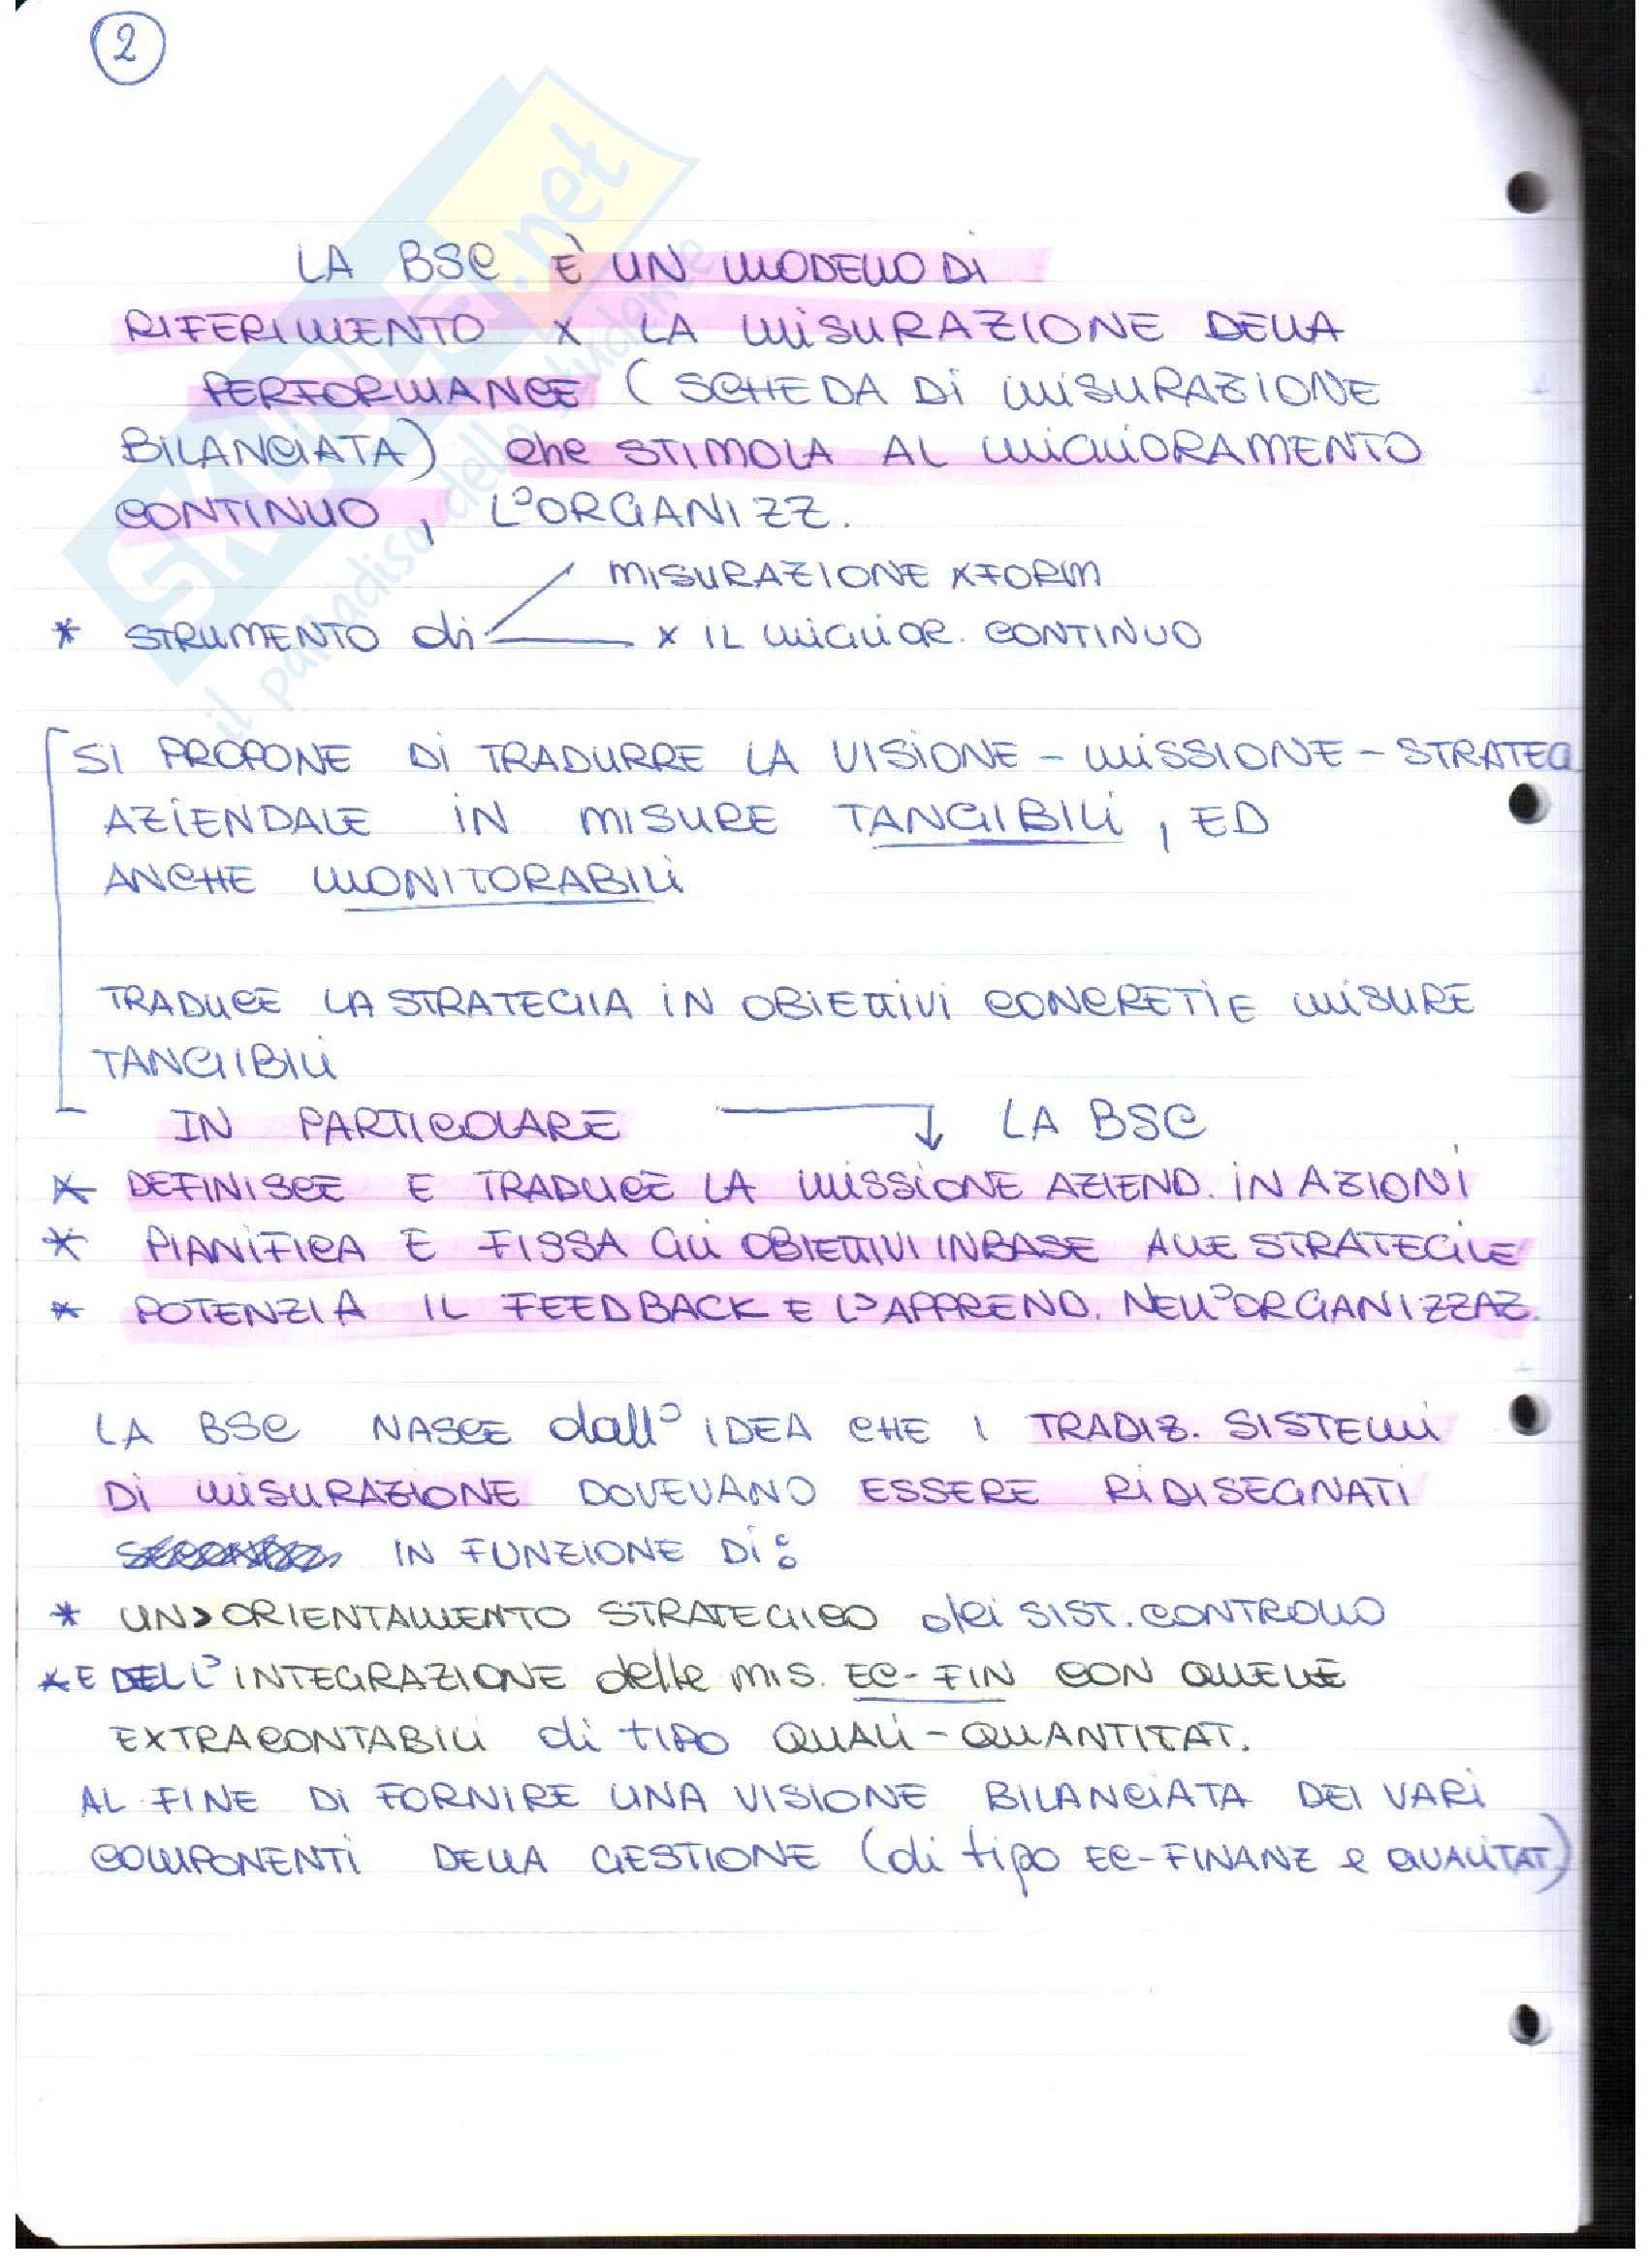 2
LA BSC È UN MODELLO DI
RIFERIMENTO X LA MISURAZIONE DELLA
PERFORMANCE (SCHEDA DI MISURAZIONE
BILANCIATA) che STIMOLA AL MIGLIORAMENTO
CONTINUO, L'ORGANIZZ.
MISURAZIONE XFORM
* STRUMENTO di X IL MIGLIOR. CONTINUO
SI PROPONE DI TRADURRE LA VISIONE - MISSIONE - STRATEG
AZIENDALE IN MISURE TANGIBILI, ED
ANCHE MONITORABILI
TRADUCE LA STRATEGIA IN OBIETTIVI CONCRETI E MISURE
TANGIBILI
IN PARTICOLARE LA BSC
* DEFINISCE E TRADUCE LA MISSIONE AZIEND. IN AZIONI
* PIANIFICA E FISSA GLI OBIETTIVI IN BASE ALLE STRATEGIE
* POTENZIA IL FEEDBACK E L'APPREND. NELL'ORGANIZZAZ.
LA BSC NASCE dall' IDEA CHE I TRADIZ. SISTEMI
DI MISURAZIONE DOVEVANO ESSERE RIDISEGNATI
IN FUNZIONE DI:
* UN > ORIENTAMENTO STRATEGICO dei SIST. CONTROLLO
* E DELL' INTEGRAZIONE delle MIS. EC-FIN CON QUELLE
EXTRACONTABILI di TIPO QUALI-QUANTITAT.
AL FINE DI FORNIRE UNA VISIONE BILANCIATA DEI VARI
COMPONENTI DELLA GESTIONE (di tipo EC-FINANZ e QUALITAT.)
SKUOLA.net
il paradiso dello studente